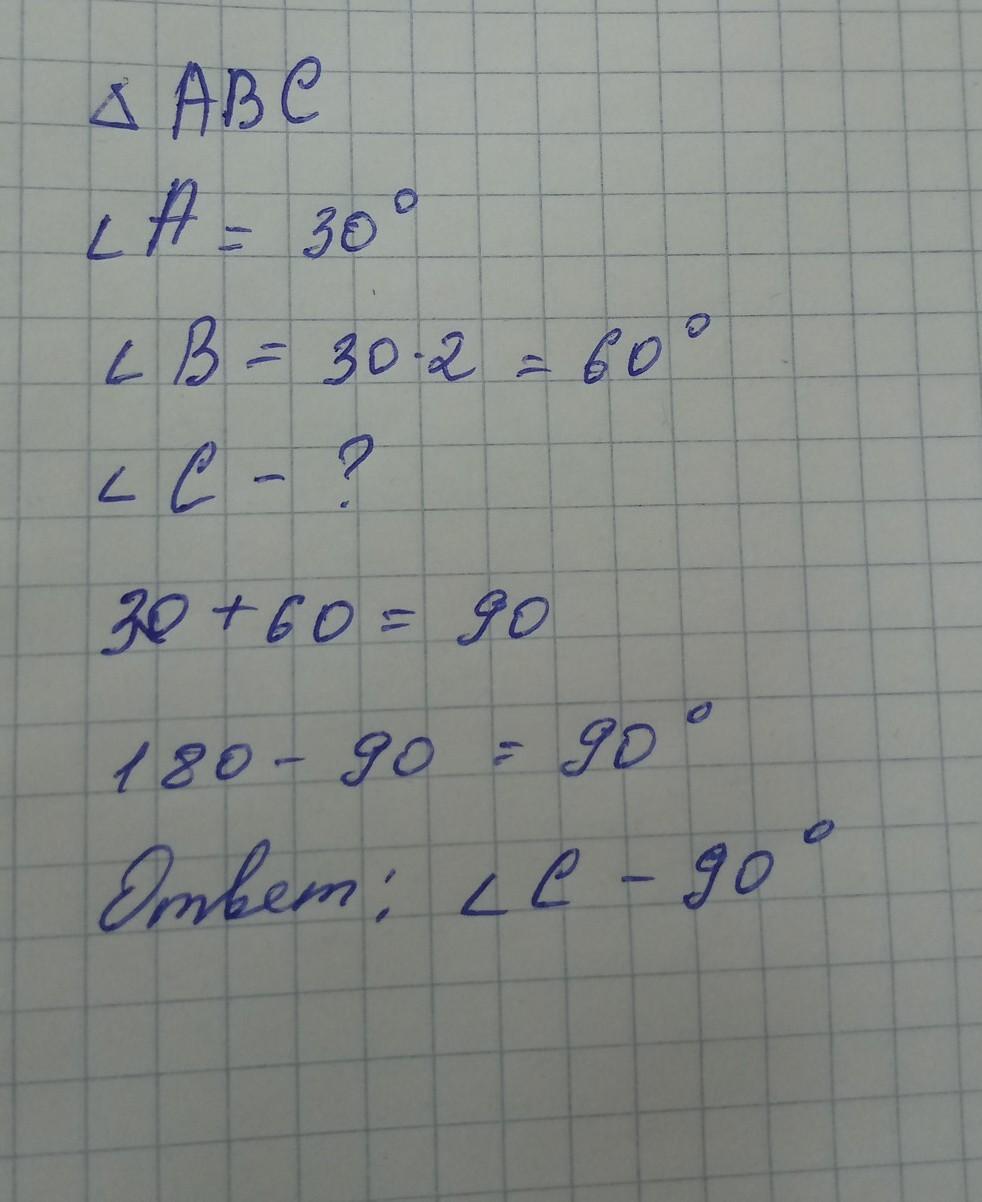 △ ABC
∠A = 30°
∠B = 30·2 = 60°
∠C - ?
30+60 = 90
180 - 90 = 90°
Ответ: ∠C - 90°